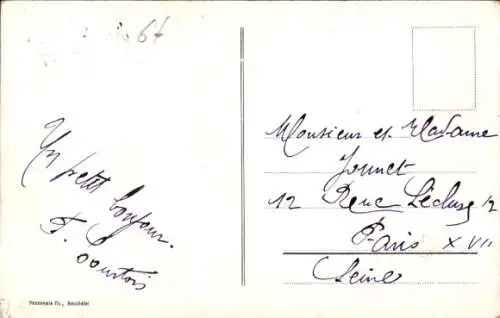 67
Un petit bonjour.
F. Courtois
Monsieur et Madame
Jounet
12 Rue Lécluse 12
Paris XVII
Seine
Phototypie Co., Neuchâtel